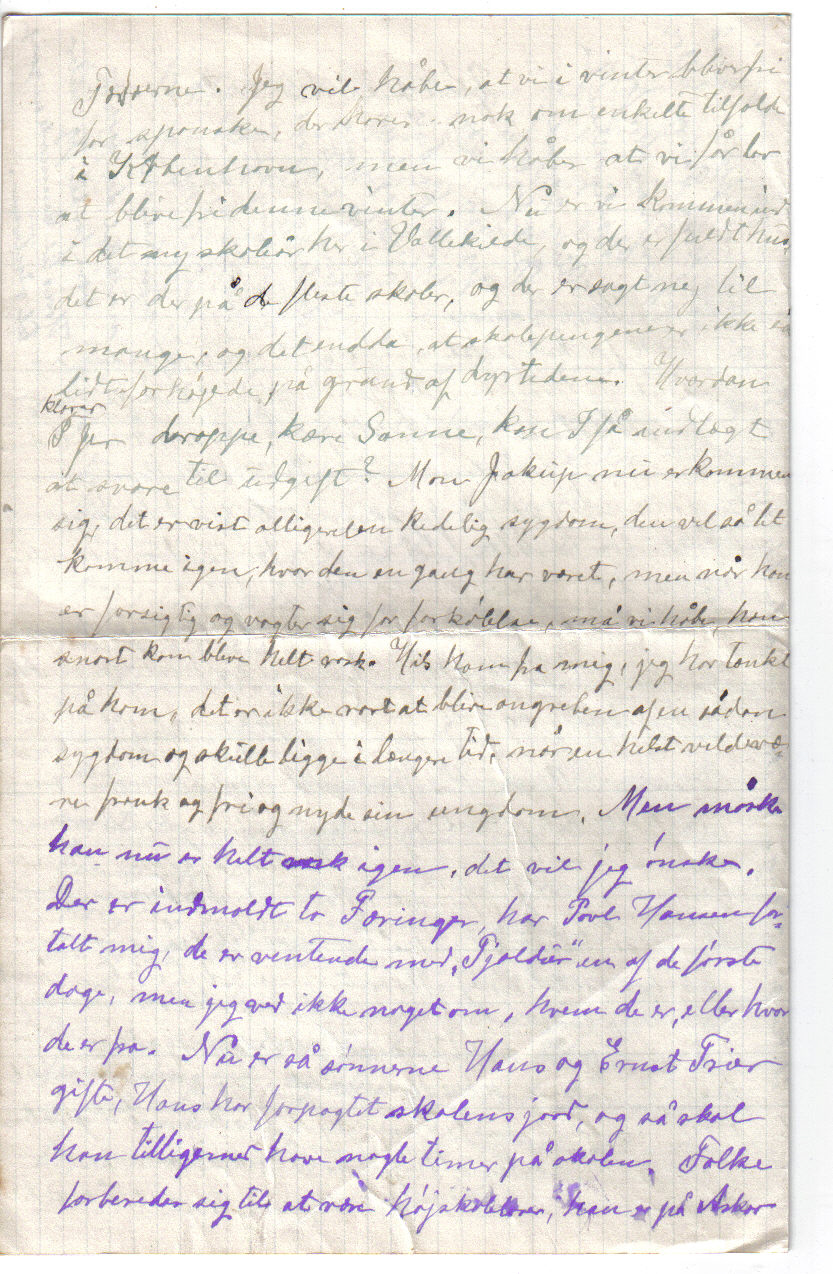 Færøerne. Jeg vil håbe, at vi i vinter bliver fri
for spanske, der høres nok om enkelte tilfælde
i København, men vi håber at vi får lov
at blive fri denne vinter. Nu er vi kommen ind
i det ny skoleår her i Vallekilde, og der er fuldt hus,
det er der på de fleste skoler, og der er sagt nej til
mange, og det endda, at skolepengene er ikke så
lidt forhøjede på grund af dyrtiden. Hvordan
klarer
I jer deroppe, kære Sanne, kan I få indtægt
at svare til udgift? Mon Jákup nu er kommen
sig, det er vist alligevel en kedelig sygdom, den vil så let
komme igen, hvor den en gang har været, men når han
er forsigtig og vogter sig for forkølelse, må vi håbe, han
snart kan blive helt rask. Hils ham fra mig, jeg har tænkt
på ham, det er ikke rart at blive angreben af en sådan
sygdom og skulle ligge i længere tid, når en helst vilde væ-
re frank og fri og nyde sin ungdom. Men måske
han nu er helt rask igen, det vil jeg ønske.
Der er indmeldt to Færinger, har Povl Hansen for-
talt mig, de er ventende med "Tjaldur" en af de første
dage, men jeg ved ikke noget om, hvem de er, eller hvor
de er fra. Nu er så sønnerne Hans og Ernst Trier
gifte, Hans har forpagtet skolens jord, og så skal
han tilligemed have nogle timer på skolen. Folke
forbereder sig til at være højskolelærer, han er på Askov